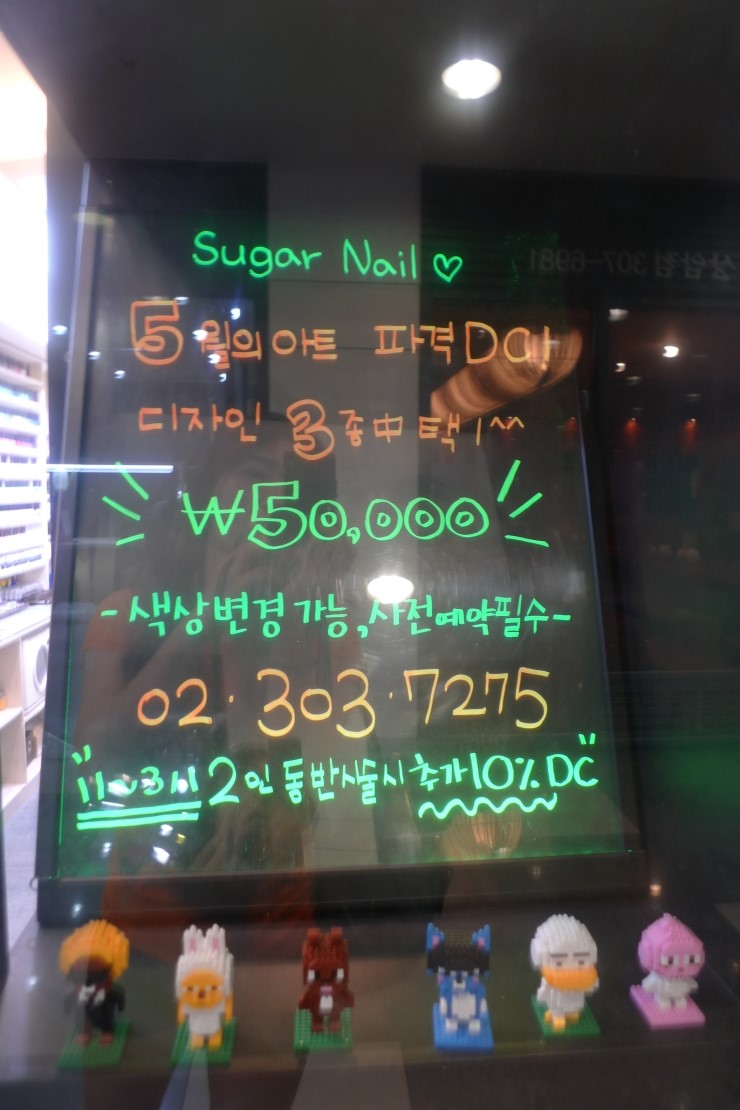 상암점 307-6981
Sugar Nail ♡
5월의 아트 파격DC!
디자인 3종中 택1^^
₩50,000
-색상변경 가능, 사전예약필수-
02·303·7275
2인 동반시술시 추가10% DC"